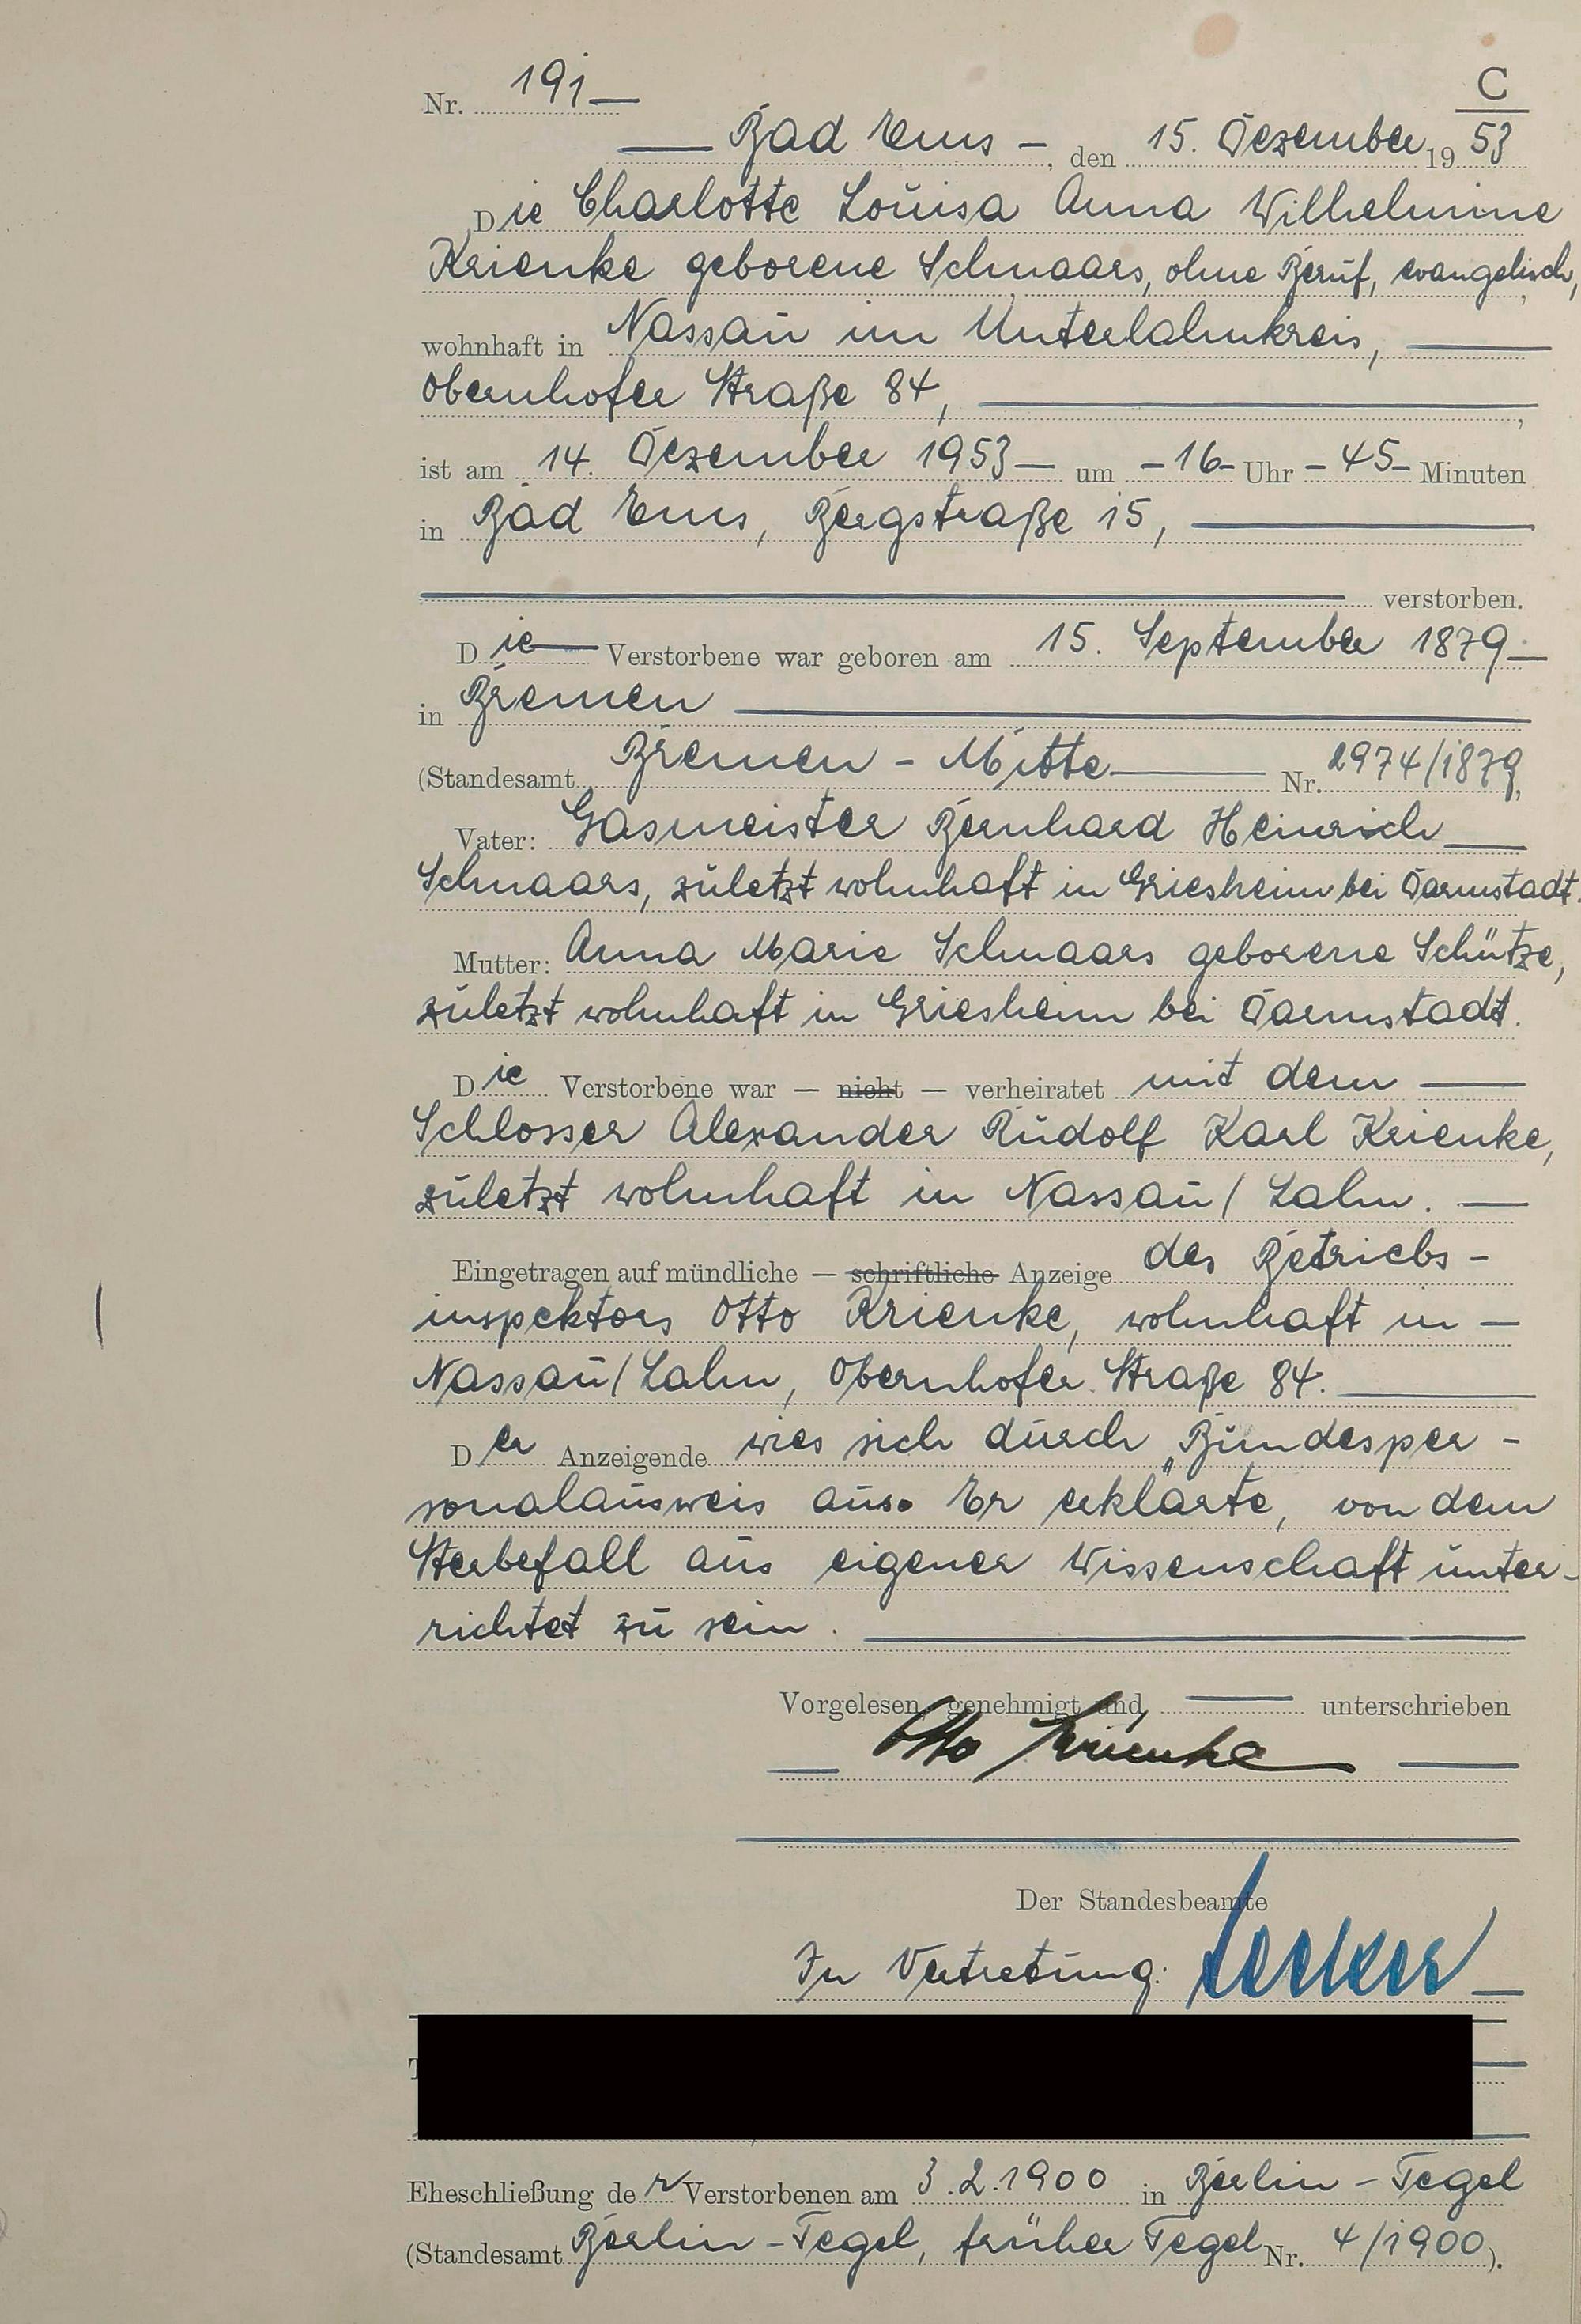 C
Nr. 191
Bad Ems, den 15. Dezember 1953
Die Charlotte Louisa Anna Wilhelmine
Krienke geborene Schnaars, ohne Beruf, evangelisch,
wohnhaft in Nassau im Unterlahnkreis,
Obernhofer Straße 84,
ist am 14. Dezember 1953 um -16- Uhr -45- Minuten
in Bad Ems, Bergstraße 15,
verstorben.
Die Verstorbene war geboren am 15. September 1879
in Bremen
(Standesamt Bremen - Mitte Nr. 2974/1879,
Vater: Gasmeister Bernhard Heinrich
Schnaars, zuletzt wohnhaft in Griesheim bei Darmstadt.
Mutter: Anna Marie Schnaars geborene Schütze,
zuletzt wohnhaft in Griesheim bei Darmstadt.
Die Verstorbene war — nicht — verheiratet mit dem
Schlosser Alexander Rudolf Karl Krienke,
zuletzt wohnhaft in Nassau/Lahn.
Eingetragen auf mündliche — schriftliche Anzeige des Betriebs-
inspektors Otto Krienke, wohnhaft in
Nassau/Lahn, Obernhofer Straße 84.
Der Anzeigende wies sich durch Bundesper-
sonalausweis aus. Er erklärte, von dem
Sterbefall aus eigener Wissenschaft unter-
richtet zu sein.
Vorgelesen, genehmigt und unterschrieben
Otto Krienke
Der Standesbeamte
In Vertretung:
Eheschließung der Verstorbenen am 3.2.1900 in Berlin - Tegel
(Standesamt Berlin - Tegel, früher Tegel Nr. 4/1900).